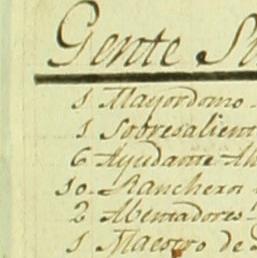 Gente
1 Mayordomo
1 Sobresalient
6 Ayudante
10 Rancheros
2 Abentadores
1 Maestro de